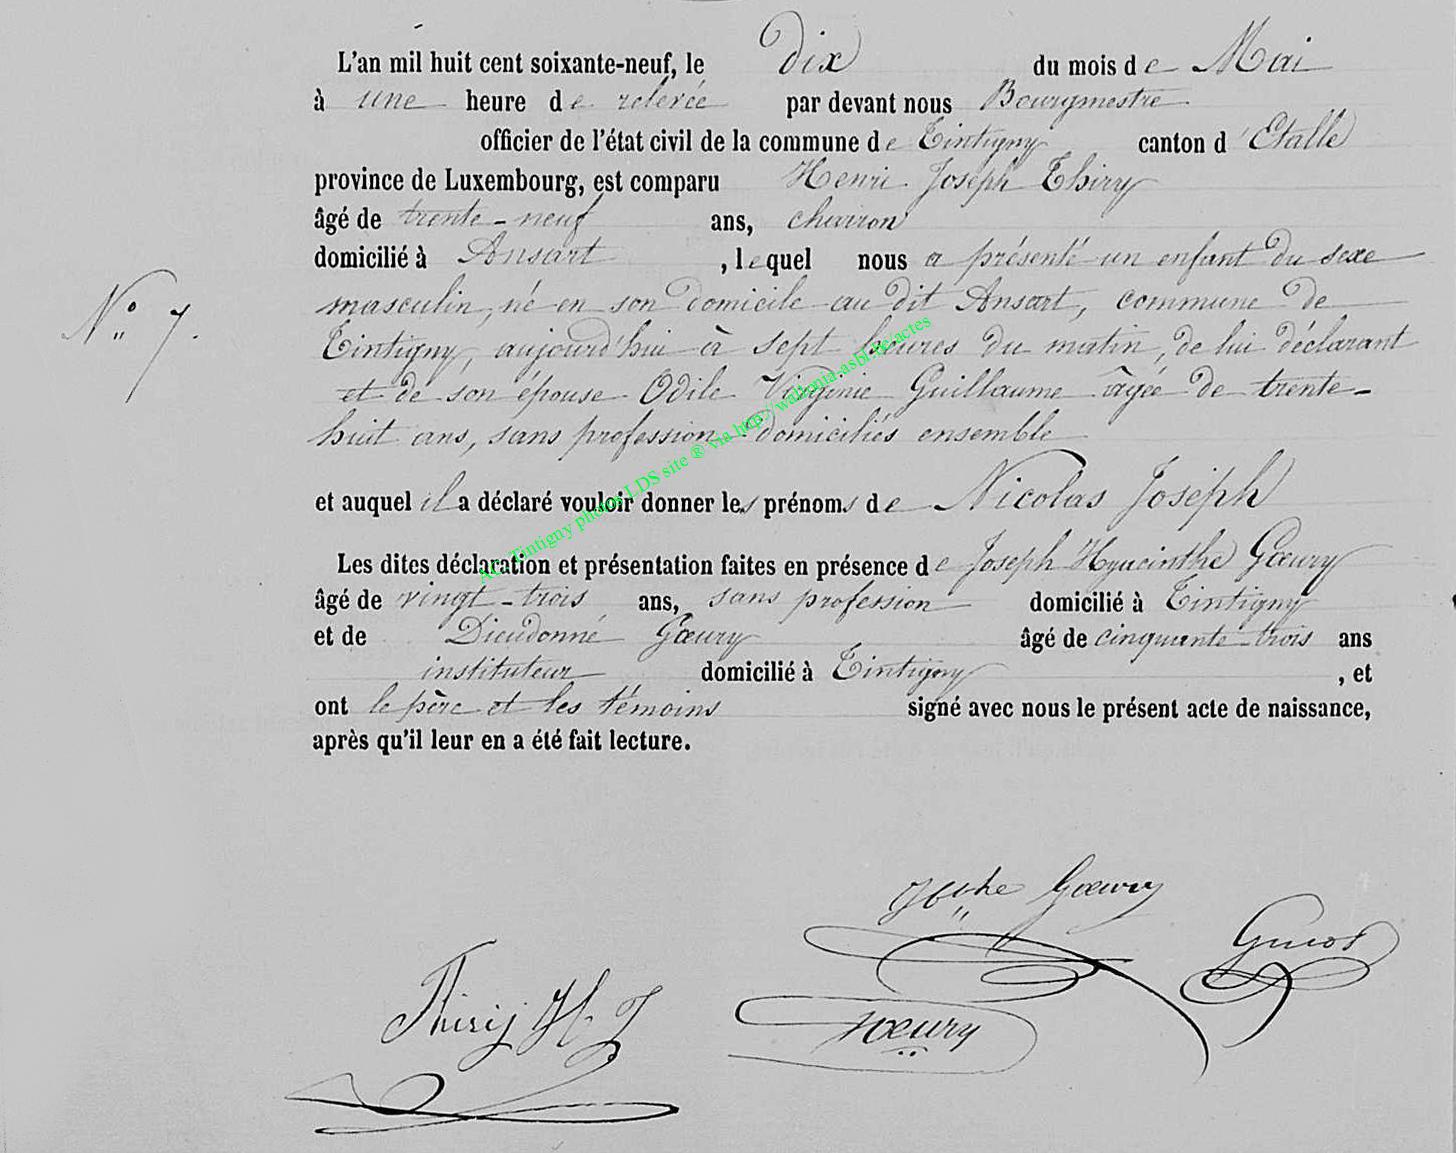 L'an mil huit cent soixante-neuf, le dix du mois de Mai
à une heure de relevée par devant nous Bourgmestre
officier de l'état civil de la commune de Tintigny canton d'Etalle
province de Luxembourg, est comparu Henri Joseph Thiry
âgé de trente-neuf ans,
domicilié à Ansart, lequel nous a présenté un enfant du sexe
masculin, né en son domicile au dit Ansart, commune de
Nº 7.
Tintigny, aujourd'hui à sept heures du matin, de lui déclarant
et de son épouse Odile Virginie Guillaume âgée de trente-
huit ans, sans profession domiciliés ensemble
et auquel il a déclaré vouloir donner les prénoms de Nicolas Joseph
Les dites déclaration et présentation faites en présence de Joseph Hyacinthe Gœury
âgé de vingt-trois ans, sans profession domicilié à Tintigny
et de Dieudonné Gœury âgé de cinquante-trois ans
instituteur domicilié à Tintigny, et
ont le père et les témoins signé avec nous le présent acte de naissance,
après qu'il leur en a été fait lecture.
AC Tintigny photos LDS site ® via http://wallonia-asbl.be/actes
Gœury
Thiry H J
Gœury